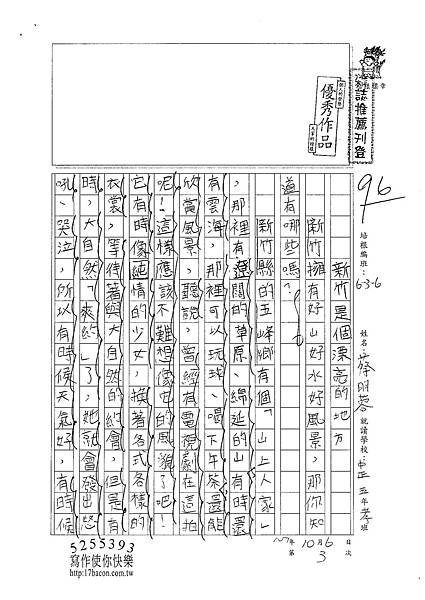 誌推薦刊登
優秀作品
96
培根編班：63-6
姓名
就讀學校：中正 五年孝班
10月6日
第3次
新竹是個漂亮的地方
新竹擁有好山好水好風景，那你知
道有哪些嗎？
新竹縣的五峰鄉有個「山上人家」
，那裡有遼闊的草原、綿延的山有時還
有雲海，那裡可以玩球、喝下午茶還能
欣賞風景，聽說，曾經有電視劇在這拍
呢！這樣應該不難想像它的風貌了吧！
它有時像純情的少女，換著各式各樣的
衣裳，等待著與大自然的約會，但是有
時，大自然「爽約」了，她就會發出怒
吼、哭泣，所以有時候天氣好，有時候
5255393
寫作使你快樂
http://17bacon.com.tw